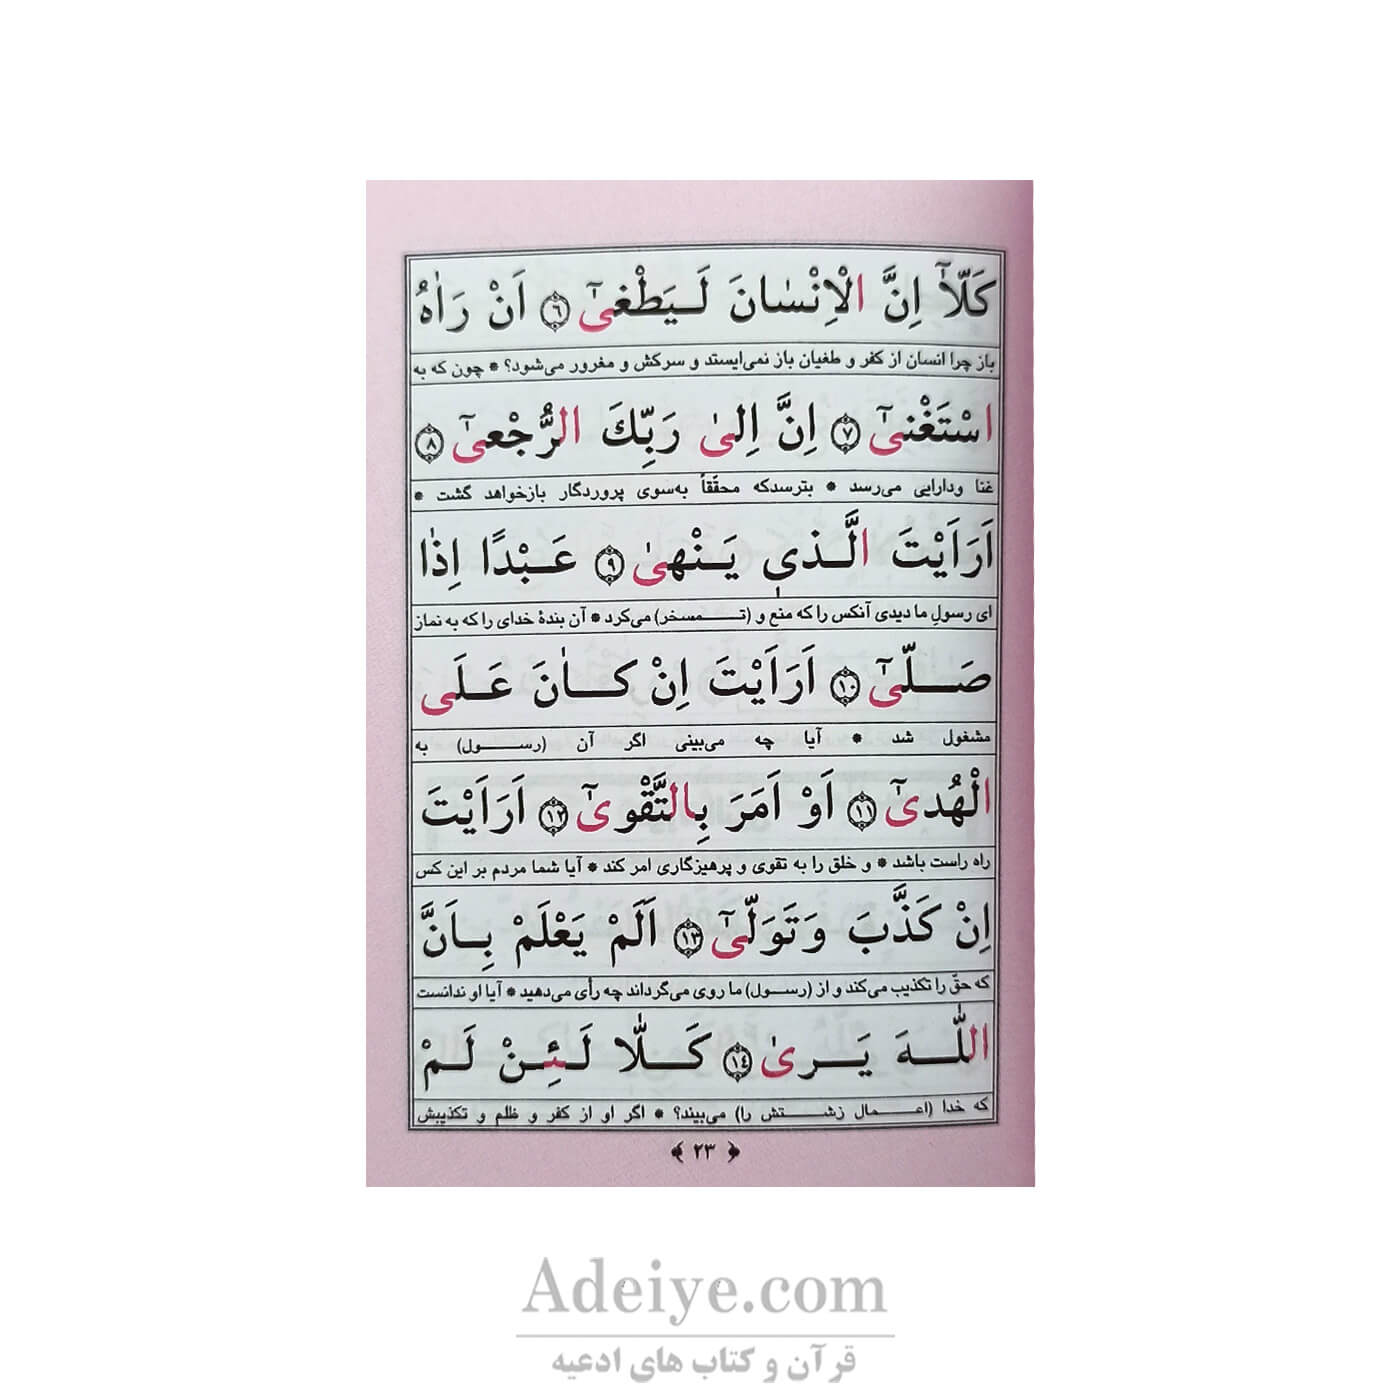 كَلَّآ اِنَّ الْاِنْسٰانَ لَـيَطْغىٰٓ ﴿٦﴾ اَنْ رَاٰهُ
باز چرا انسان از کفر و طغیان باز نمی‌ایستد و سرکش و مغرور می‌شود؟ * چون که به
اسْتَغْنىٰٓ ﴿٧﴾ اِنَّ اِلىٰ رَبِّكَ الرُّجْعىٰٓ ﴿٨﴾
غنا ودارایی می‌رسد * بترسدکه محقّقاً به‌سوی پروردگار بازخواهد گشت *
اَرَاَيْتَ الَّـذى يَـنْهىٰ ﴿٩﴾ عَـبْدًا اِذٰا
ای رسولِ ما دیدی آنکس را که منع و (تـمسخر) می‌کرد * آن بندهٔ خدای را که به نماز
صَـلّىٰٓ ﴿١٠﴾ اَرَاَيْتَ اِنْ كٰـانَ عَـلَى
مشغول شد * آیا چه می‌بینی اگر آن (رسـول) به
الْهُدىٰٓ ﴿١١﴾ اَوْ اَمَرَ بِالتَّقْوىٰٓ ﴿١٢﴾ اَرَاَيْتَ
راه راست باشد * و خلق را به تقوی و پرهیزگاری امر کند * آیا شما مردم بر این کس
اِنْ كَذَّبَ وَتَوَلّىٰٓ ﴿١٣﴾ اَلَمْ يَعْلَمْ بِـاَنَّ
که حقّ را تکذیب می‌کند و از (رسول) ما روی می‌گرداند چه رأی می‌دهید * آیا او ندانست
اللّٰـهَ يَـرىٰ ﴿١٤﴾ كَـلّٰا لَـئِـنْ لَمْ
که خدا (اعـمال زشـتش را) می‌بیند؟ * اگر او از کفر و ظلم و تکذیبش
﴿ ٢٣ ﴾
Adeiye.com
قرآن و کتاب های ادعیه